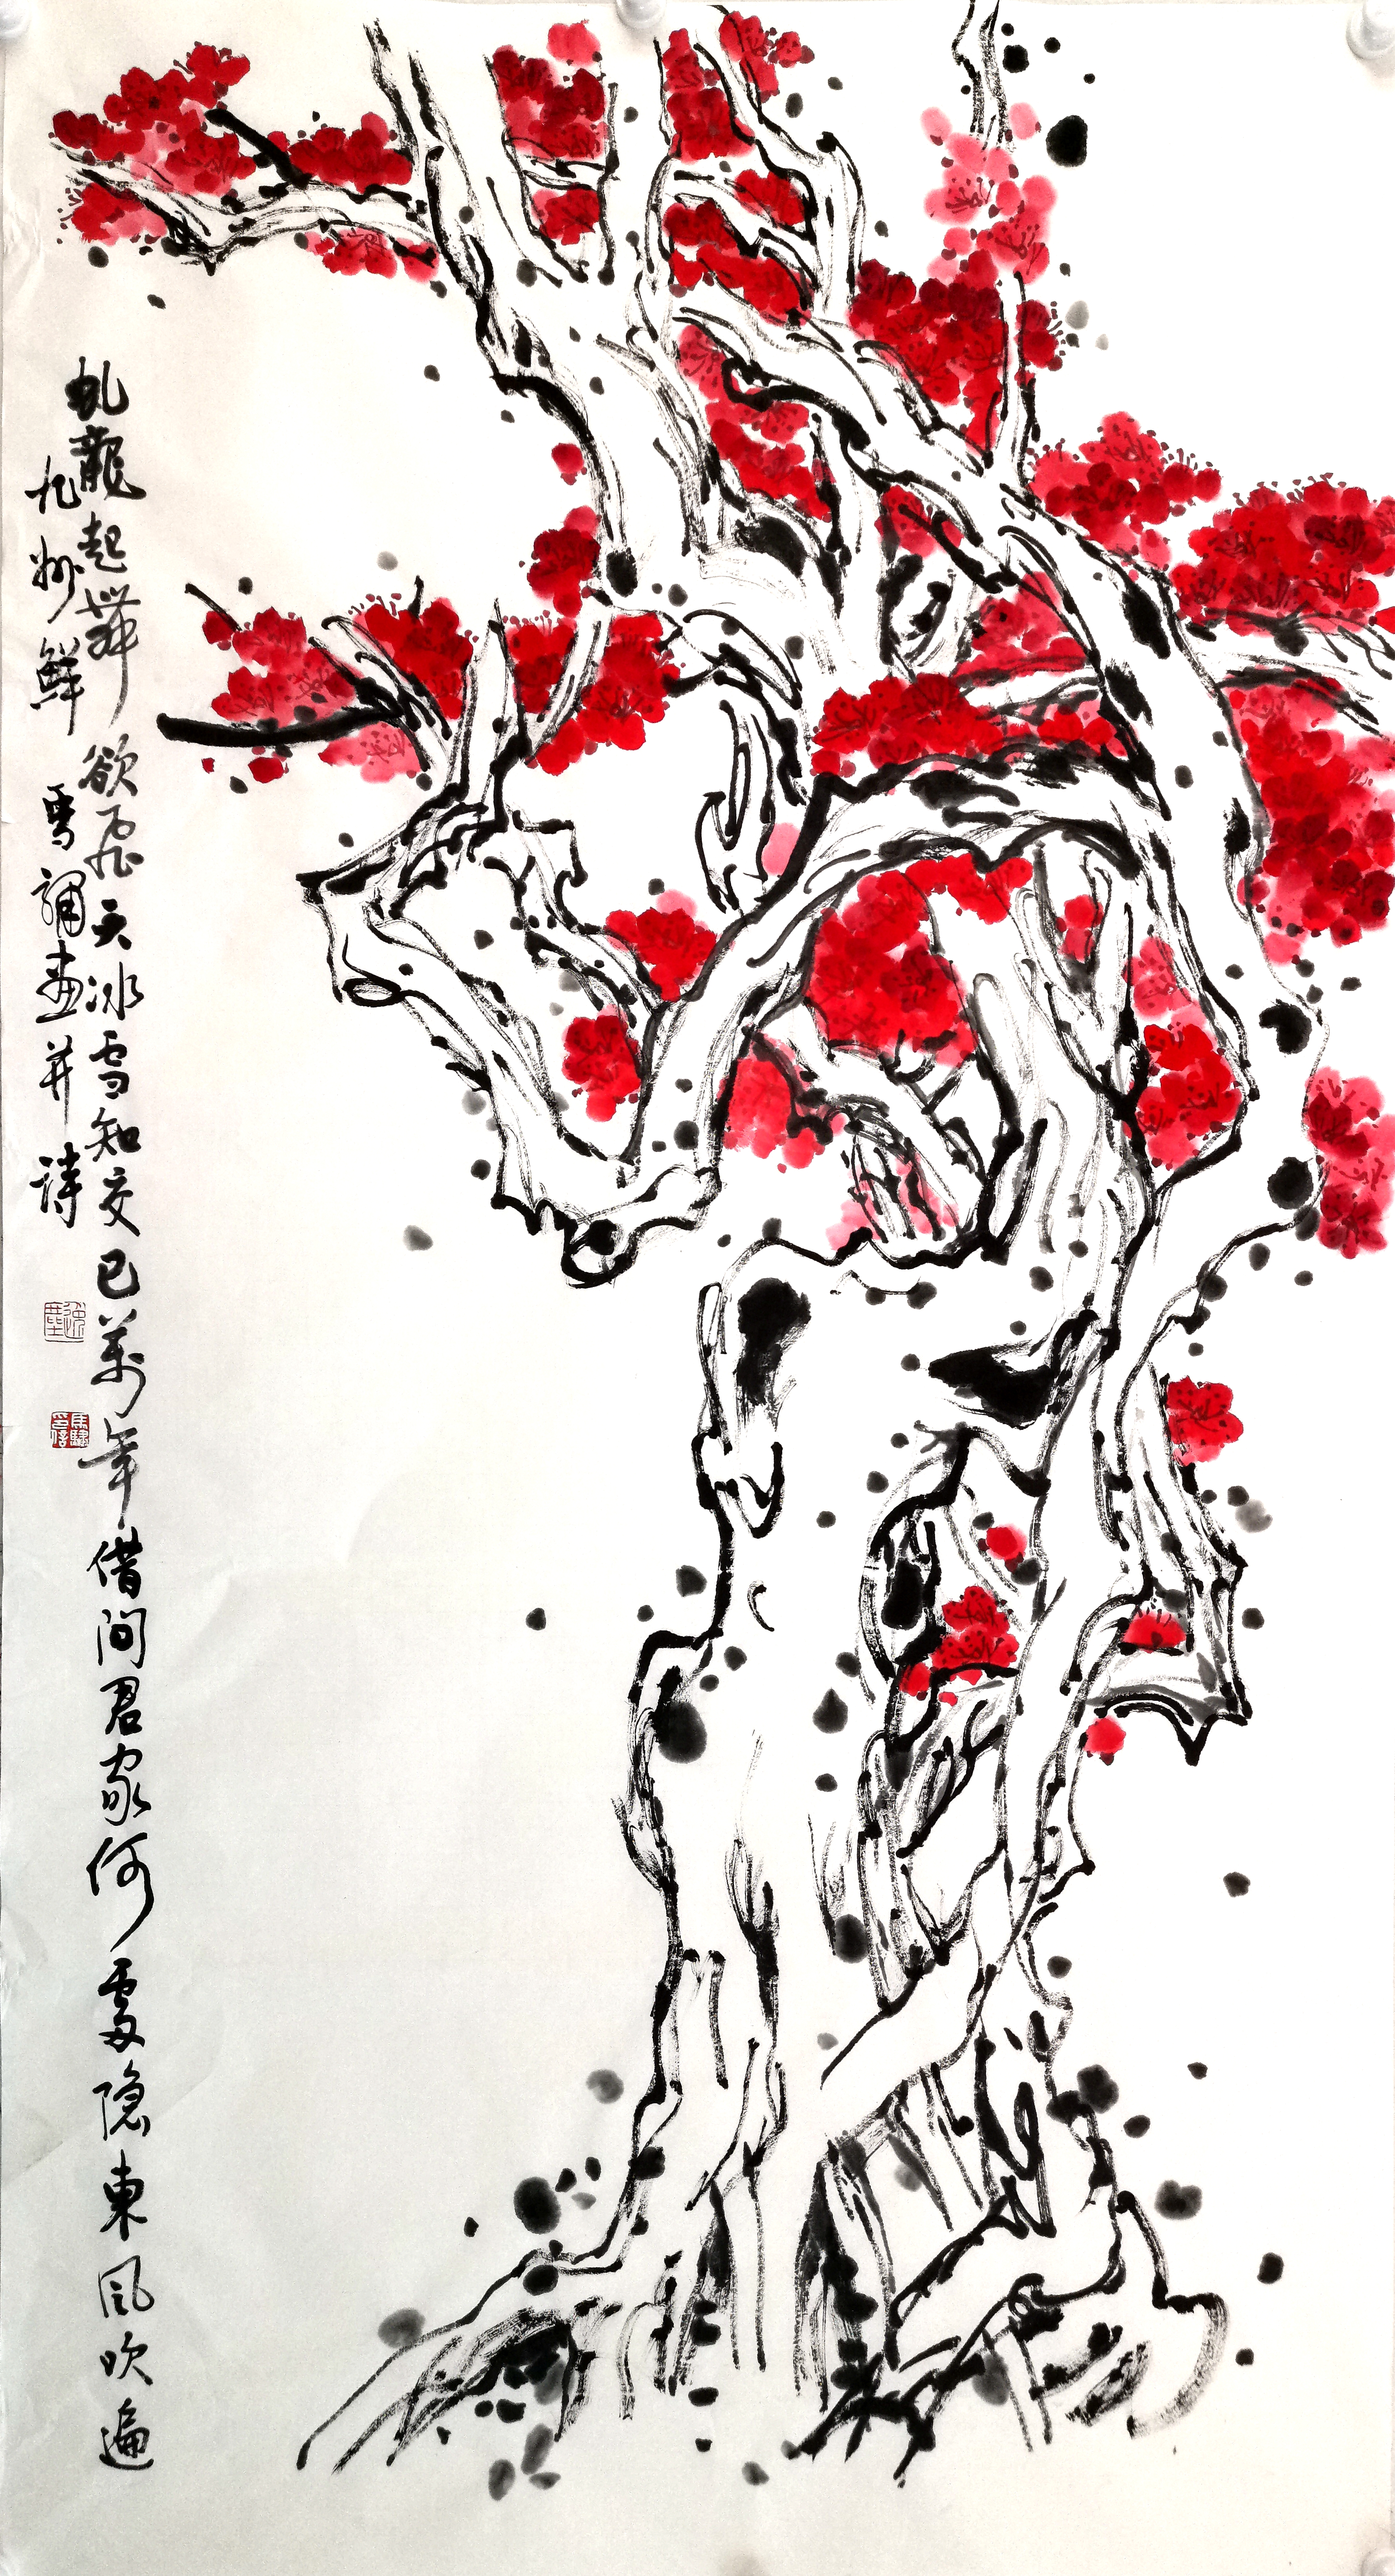 虬龍起舞欲飛天冰雪知交已萬年借問君家何處隐東風吹遍
九州鮮 雪 畫并詩